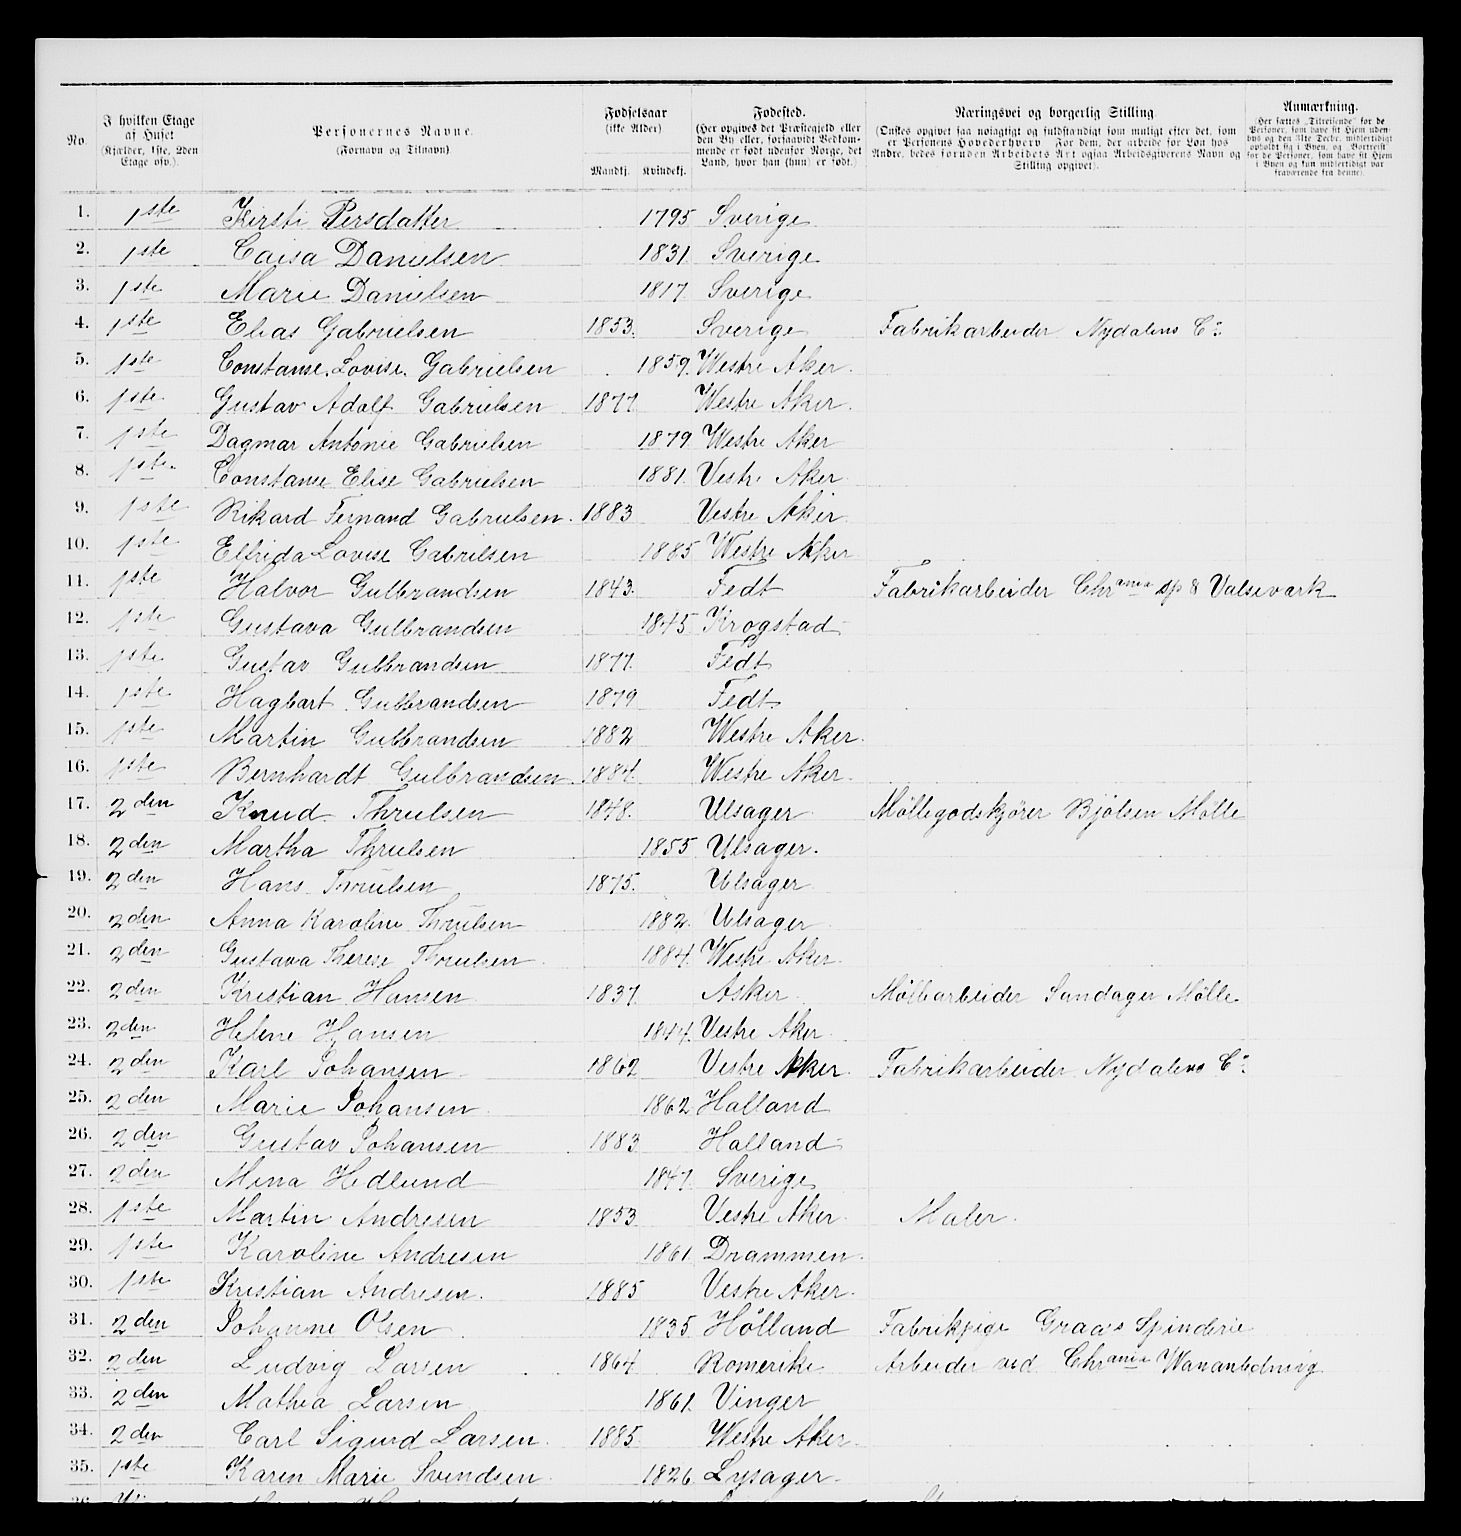 No. | I hvilken Etage af Huset (Kjælder, 1ste, 2den Etage osv.). | Personernes Navne. (Fornavn og Tilnavn) | Fødselsaar (ikke Alder) Mandkj. | Kvindekj. | Fødested. (Her opgives det Præstegjeld eller den By eller, forsaavidt Vedkommende er født udenfor Norge, det Land, hvor han (hun) er født.) | Næringsvei og borgerlig Stilling (Ønskes opgivet saa nøiagtigt og fuldstændigt som muligt efter det, som er Personens Hovederhverv For dem, der arbeide for Løn hos Andre, bedes foruden Arbeidets Art ogsaa Arbeidsgiverens Navn og Stilling opgivet). | Anmærkning. (Her sættes „Tilreisende“ for de Personer, som have sit Hjem udenbys og den 31te Decbr. midlertidigt opholdt sig i Byen, og „Bortreist“ for de Personer, som have sit Hjem i Byen og kun midlertidigt var fraværende fra denne).
1. 1ste Kirsti Persdatter 1795 Sverige
2. 1ste Caisa Danielsen 1831 Sverige
3. 1ste Marie Danielsen 1817 Sverige
4. 1ste Elias Gabrielsen 1853. Sverige Fabrikarbeider Nydalens Co
5. 1ste Constanse Lovise Gabrielsen 1859. Westre Aker.
6. 1ste Gustav Adolf Gabrielsen 1877 Westre Aker.
7. 1ste Dagmar Antonie Gabrielsen 1879 Westre Aker
8. 1ste Constanse Elise Gabrielsen 1881. Vestre Aker
9. 1ste Rikard Fernand Gabrielsen. 1883 Vestre Aker
10. 1ste Elfrida Lovise Gabrielsen 1885 Westre Aker
11. 1ste Halvor Gulbrandsen 1843. Fedt Fabrikarbeider Chrania sp & Valsevark
12. 1ste Gustava Gulbrandsen 1845 Krogstad
13. 1ste Gustav Gulbrandsen 1877. Fedt
14. 1ste Hagbart Gulbrandsen 1879 Fedt
15. 1ste Martin Gulbrandsen 1882 Westre Aker.
16. 1ste Bernhardt Gulbrandsen 1884. Westre Aker.
17. 2den Knud Thrulsen 1848. Ulsager Møllegodskjører Bjølsen Mølle
18. 2den Martha Thrulsen 1855 Ulsager.
19. 2den Hans Thrulsen 1875. Ulsager
20. 2den Anna Karoline Thrulsen 1882. Ulsager
21. 2den Gustava Therese Thrulsen 1884. Westre Aker.
22. 2den Kristian Hansen 1837. Asker Møllearbeider Sandager Mølle
23. 2den Helene Hansen 1844. Vestre Aker
24. 2den Karl Johansen 1862 Vestre Aker. Fabrikarbeider Nydalens Co
25. 2den Marie Johansen 1862 Halland
26. 2den Gustav Johansen 1883 Halland
27. 2den Mina Hedlund 1847. Sverige
28. 1ste Martin Andresen 1853 Vestre Aker. Maler.
29. 1ste Karoline Andresen 1861. Drammen.
30. 1ste Kristian Andresen. 1885 Vestre Aker.
31. 2den Johanne Olsen 1835. Hølland Fabrikpige Graas Spinderie
32. 2den Ludvig Larsen 1864. Romerike Arbeider ved Chrania
33. 2den Mathea Larsen 1861. Vinger
34. 2den Carl Sigurd Larsen. 1885. Westre Aker.
35. 1ste Karen Marie Svendsen 1826.